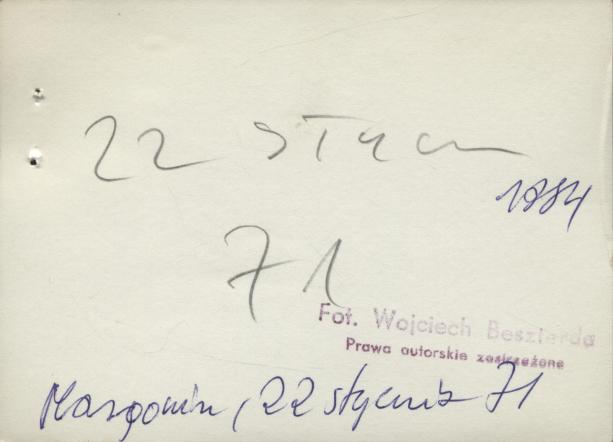 22 stycz
1884
71
Fot. Wojciech Beszterda
Prawa autorskie zastrzeżone
Margonin, 22 stycznia 71